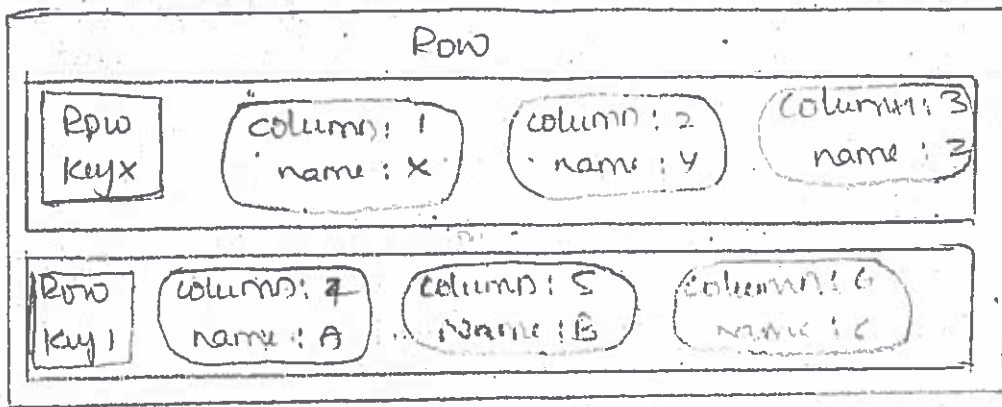 Row
Row
Key x
column: 1
name: x
column: 2
name: y
column: 3
name: z
Row
Key 1
column: 4
name: A
column: 5
name: B
column: 6
name: C